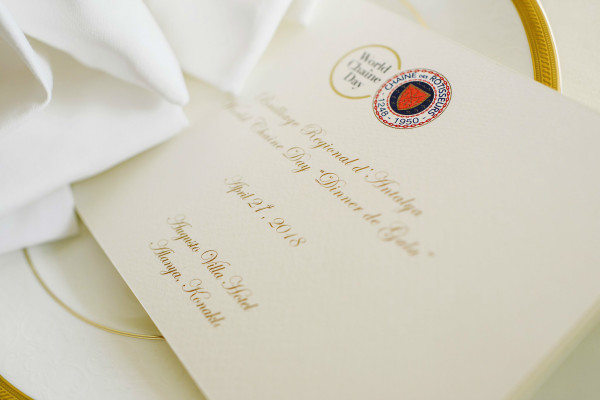 World
Chaîne
Day
CHAÎNE DES RÔTISSEURS
1248 - 1950
Bailliage Regional d'Antalya
Chaine Day "Dinner de Gala"
April 21st, 2018
Augusto Villa Hotel
Alanya, Konaklı